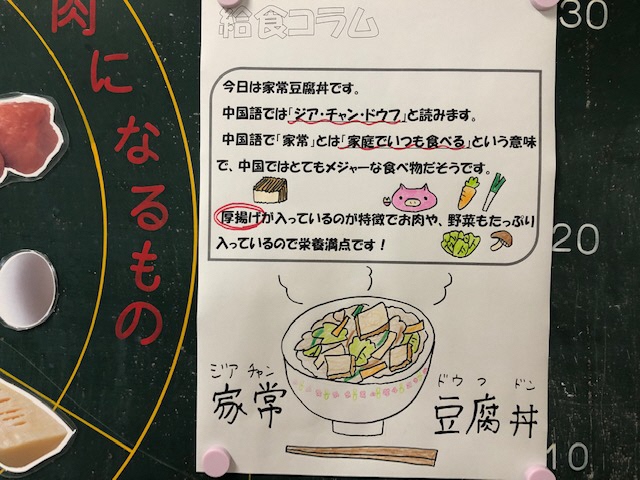 肉になるもの
給食コラム
今日は家常豆腐丼です。
中国語では「ジア・チャン・ドウフ」と読みます。
中国語で「家常」とは「家庭でいつも食べる」という意味
で、中国ではとてもメジャーな食べ物だそうです。
厚揚げが入っているのが特徴でお肉や、野菜もたっぷり
入っているので栄養満点です！
ジア チャン
家常
ドウ フ ドン
豆腐丼
30
20
10